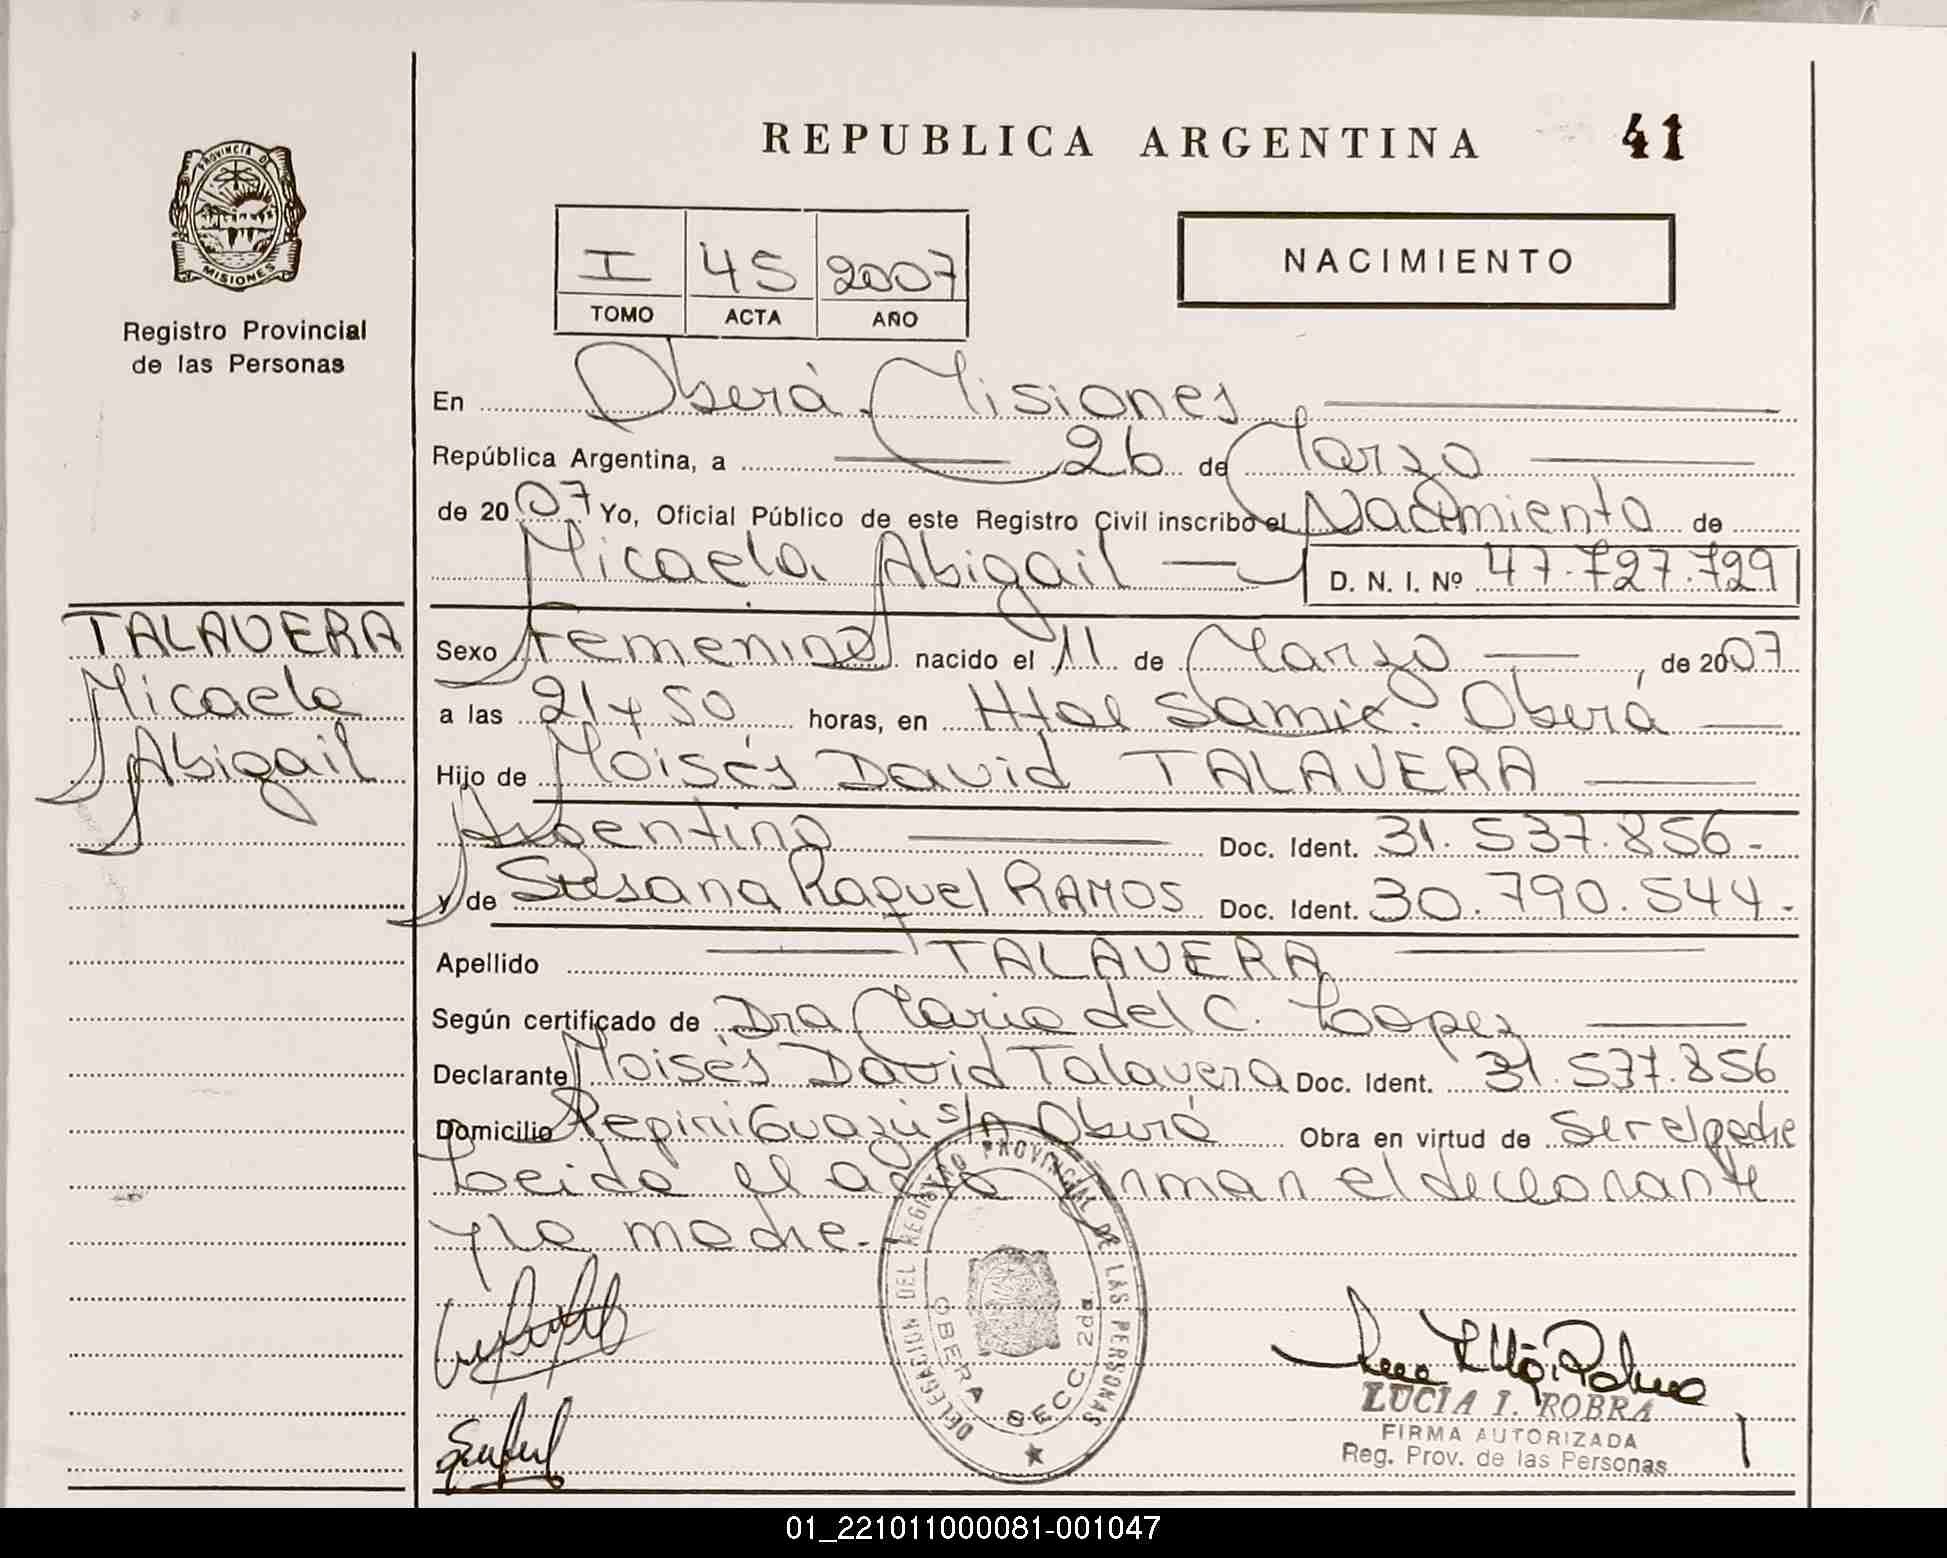 REPUBLICA ARGENTINA 41
PROVINCIA D
MISIONES
Registro Provincial
de las Personas
I 45 2007
TOMO ACTA AÑO
NACIMIENTO
En Oberá Misiones
República Argentina, a 26 de Marzo
de 2007 Yo, Oficial Público de este Registro Civil inscribo el Nacimiento de
Micaela Abigail D. N. I. Nº 47.727.729
TALAVERA
Micaela
Abigail
Sexo Femenino nacido el 11 de Marzo, de 2007
a las 21 y 50 horas, en Htal Samic. Oberá
Hijo de Moisés David TALAVERA
Argentino Doc. Ident. 31.537.856-
y de Susana Raquel RAMOS Doc. Ident. 30.790.544-
Apellido TALAVERA
Según certificado de Dra Maria del C. Lopez
Declarante Moisés David Talavera Doc. Ident. 31.537.856
Domicilio Pepiri Guazú s/n Oberá Obra en virtud de ser el padre
Leida el acta firman el declarante
y la madre.-
DELEGACION DEL REGISTRO PROVINCIAL DE LAS PERSONAS
OBERA SECC. 2da.
LUCIA I. ROBRA
FIRMA AUTORIZADA
Reg. Prov. de las Personas
01_221011000081-001047